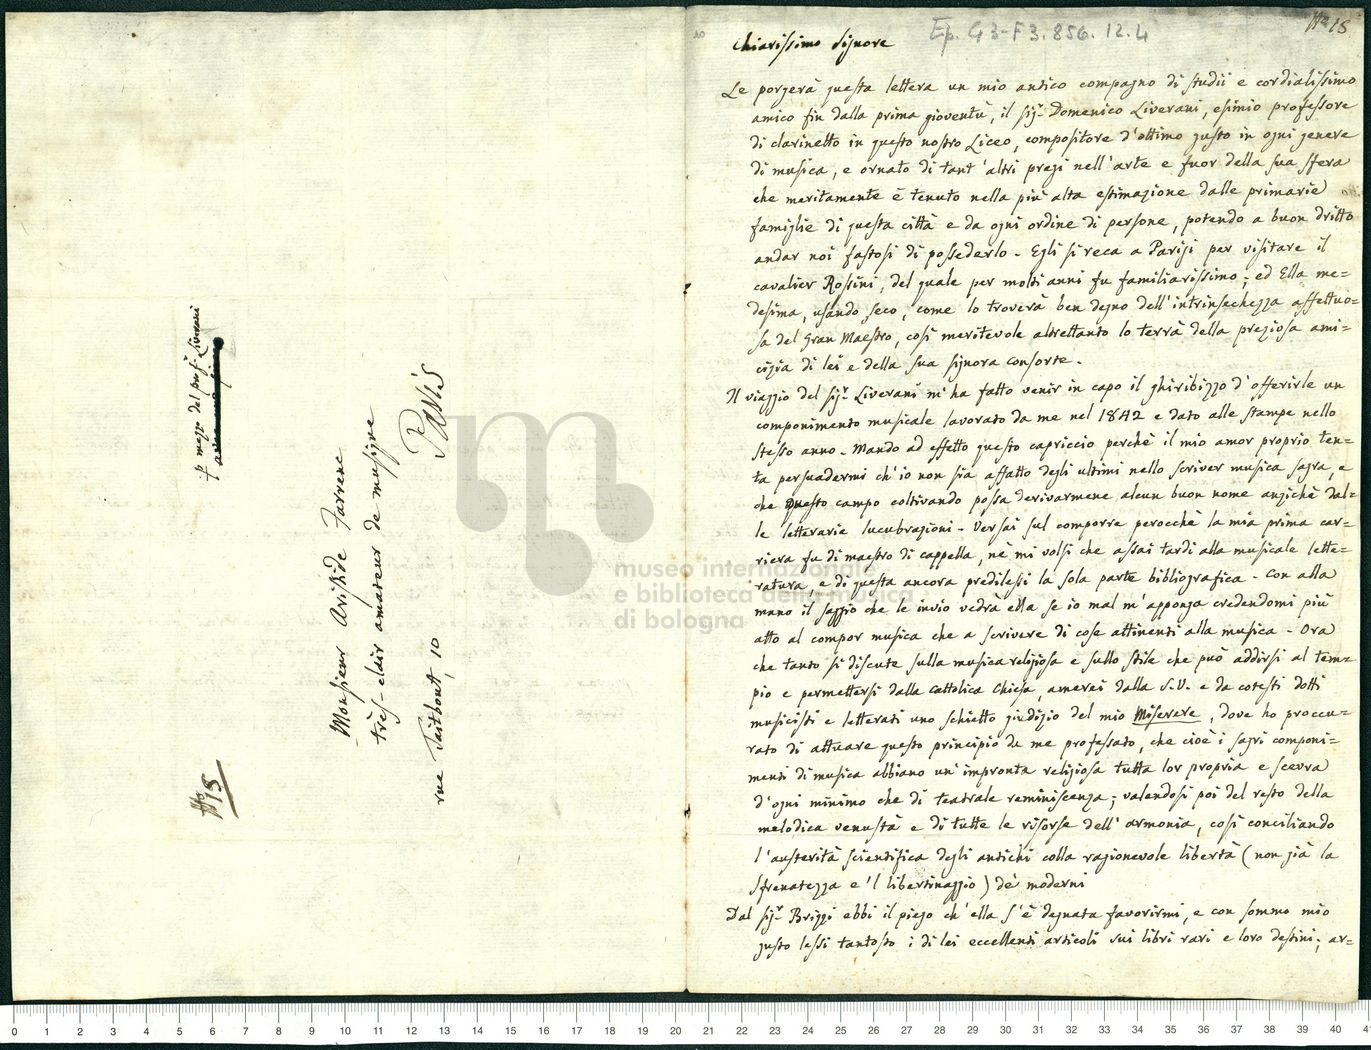 p mezzo del prof. Liverani
Monsieur Aristide Farrenc
très-clair amateur de musique
rue Taitbout, 10
Paris
No 15
Ep. G3-F3.856.12.4
No 15
Chiarissimo Signore
Le porgerà questa lettera un mio antico compagno di studii e cordialissimo
amico fin dalla prima gioventù, il sigr. Domenico Liverani, esimio professore
di clarinetto in questo nostro Liceo, compositore d'ottimo gusto in ogni genere
di musica, e ornato di tant'altri pregi nell'arte e fuor della sua sfera
che meritamente è tenuto nella più alta estimazione dalle primarie
famiglie di questa città e da ogni ordine di persone, potendo a buon dritto
andar noi fastosi di possederlo. Egli si reca a Parigi per visitare il
cavalier Rossini, del quale per molti anni fu familiarissimo; ed Ella me=
desima, usando seco, come lo troverà ben degno dell'intrinsechezza affettuo=
sa del Gran Maestro, così meritevole altrettanto lo terrà della preziosa ami=
cizia di lei e della sua signora consorte.
Il viaggio del sigr. Liverani m'ha fatto venir in capo il ghiribizzo d'offerirle un
componimento musicale lavorato da me nel 1842 e dato alle stampe nello
stesso anno. Mando ad effetto questo capriccio perchè il mio amor proprio ten=
ta persuadermi ch'io non sia affatto degli ultimi nello scriver musica sagra, e
che questo campo coltivando possa derivarmene alcun buon nome anzichè dal=
le letterarie lucubrazioni. Versai sul comporre perocchè la mia prima car=
riera fu di maestro di cappella, nè mi volsi che assai tardi alla musicale lette=
ratura, e di questa ancora predilessi la sola parte bibliografica. Con alla
mano il saggio che le invio vedrà ella se io mal m'apponga credendomi più
atto al compor musica che a scrivere di cose attinenti alla musica. Ora
che tanto si discute sulla musica religiosa e sullo stile che può addirsi al tem=
pio e permettersi dalla Cattolica Chiesa, amerei dalla S.V. e da cotesti dotti
musicisti e letterati uno schietto giudizio del mio Miserere, dove ho proccu=
rato di attuare questo principio da me professato, che cioè i sagri componi=
menti di musica abbiano un'impronta religiosa tutta lor propria e scevra
d'ogni minimo che di teatrale reminiscenza; valendosi poi del resto della
melodica venustà e di tutte le risorse dell'armonia, così conciliando
l'austerità scientifica degli antichi colla ragionevole libertà (non già la
sfrenatezza e 'l libertinaggio) de' moderni
Dal sigr. Brizzi ebbi il piego ch'ella s'è degnata favorirmi, e con sommo mio
gusto lessi tantosto i di lei eccellenti articoli sui libri rari e loro destini; ar=
museo internazionale
e biblioteca della musica
di bologna
0 1 2 3 4 5 6 7 8 9 10 11 12 13 14 15 16 17 18 19 20 21 22 23 24 25 26 27 28 29 30 31 32 33 34 35 36 37 38 39 40